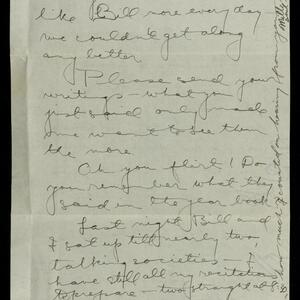 like Bill more every day
we couldn't get along
any better
Please send your
writings – what you
just said only made
me want to see them
the more.
Oh you flirt! Do
you remember what they
said in the year book
Last night Bill and
I sat up till nearly two,
talking societies – I
have still all my recitations
to prepare – two straight at 8:30
how much I counted on hearing from